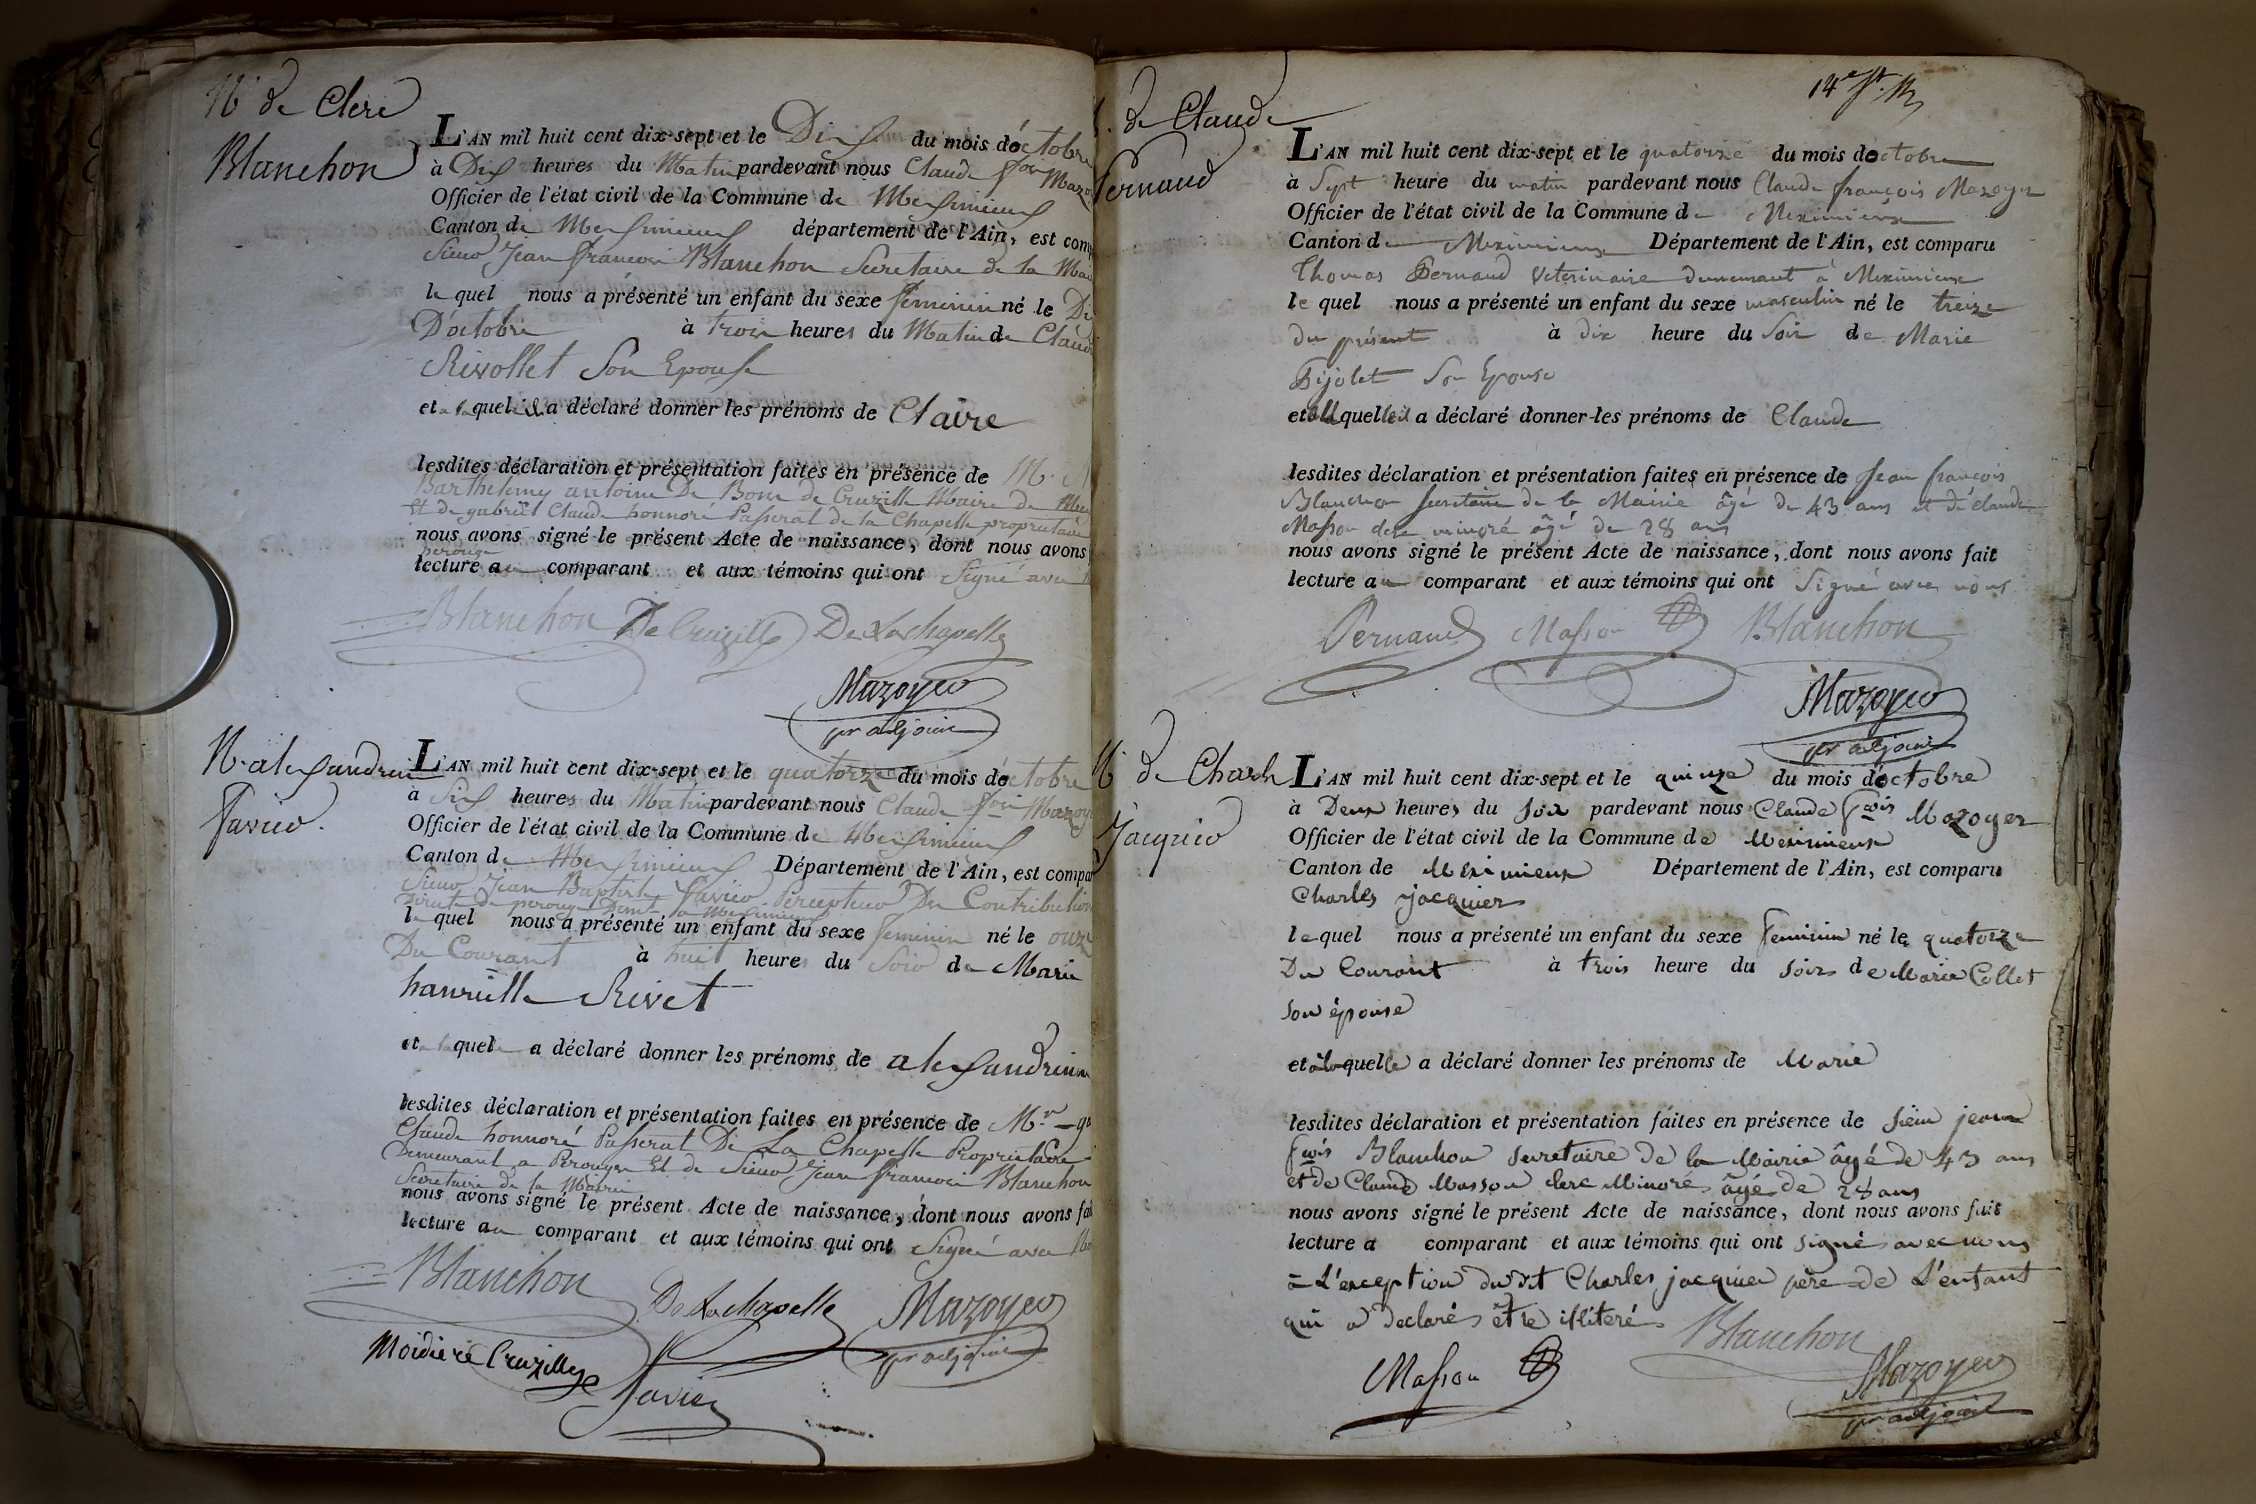 N. de Clere
Blanchon
L'AN mil huit cent dix-sept et le Dix du mois d'octobre
à Dix heures du Matin pardevant nous Claude fois Mazo
Officier de l'état civil de la Commune de Meximieux
Canton de Meximieux département de l'Ain, est comp
Sieur Jean francois Blanchon Secretaire de la Mai
le quel nous a présenté un enfant du sexe feminin né le Di
D'octobre à trois heures du Matin de Claud
Rivollet Son Epouse
et a laquelle a déclaré donner les prénoms de Claire
lesdites déclaration et présentation faites en présence de M.
Barthelemy antoine De Bone de Cruzille Maire de Mex
Et de gabriel Claude honnoré Passerat de la Chapelle proprietaire
nous avons signé le présent Acte de naissance, dont nous avons
perouge
lecture au comparant et aux témoins qui ont Signé avec
Blanchon De Cruzille De Lachapelle
Mazoyer
pr adjoint
N. alexandrin
favier.
L'AN mil huit cent dix-sept et le quatorze du mois d'octobre
à Six heures du Matin pardevant nous Claude fois Mazoye
Officier de l'état civil de la Commune de Meximieux
Canton de Meximieux Département de l'Ain, est compa
Sieur Jean Baptiste favier Percepteur Du Contribution
Directe de perouge Demt a Meximieux
le quel nous a présenté un enfant du sexe feminin né le onze
Du Courant à huit heures du Soir de Marie
hanriëlle Rivet
et a laquelle a déclaré donner les prénoms de alexandrinne
lesdites déclaration et présentation faites en présence de Mr ga
Claude honnoré Passerat De La Chapelle Proprietaire
Demeurant a Perouges Et de Sieur Jean francois Blanchon
Secretaire de la Mairie
nous avons signé le présent Acte de naissance, dont nous avons fai
lecture au comparant et aux témoins qui ont Signé avec No
Blanchon De Lachapelle Mazoyer
pr adjoint
Moidiere Cruzilles favier
14e ft.
N. de Claude
Pernaud
L'AN mil huit cent dix-sept et le quatorze du mois d'octobre
à Sept heure du matin pardevant nous Claude françois Mazoyer
Officier de l'état civil de la Commune de Meximieux
Canton de Meximieux Département de l'Ain, est comparu
Thomas Pernaud Veterinaire demeurant à Meximieux
le quel nous a présenté un enfant du sexe masculin né le treize
du présent à dix heure du Soir de Marie
Pijolet Son Epouse
et auquel il a déclaré donner les prénoms de Claude
lesdites déclaration et présentation faites en présence de Jean françois
Blanchon Secretaire de la Mairie âgé de 43 ans et de claude
Masson clerc minoré âgé de 28 ans
nous avons signé le présent Acte de naissance, dont nous avons fait
lecture au comparant et aux témoins qui ont Signé avec nous
Pernaud Masson Blanchon
Mazoyer
pr adjoint
N. de Charle
Jacquier
L'AN mil huit cent dix-sept et le quinze du mois d'octobre
à Deux heures du Soir pardevant nous Claude fcois Mazoyer
Officier de l'état civil de la Commune de Meximieux
Canton de Meximieux Département de l'Ain, est comparu
Charles jacquier
lequel nous a présenté un enfant du sexe feminin né le quatorze
Du Courant à trois heure du soir de Marie Collet
son épouse
et a laquelle a déclaré donner les prénoms de Marie
lesdites déclaration et présentation faites en présence de siëur jean
fcois Blanchon secretaire de la Mairie âgé de 43 ans
et de Claude Masson clerc Minoré âgé de 28 ans
nous avons signé le présent Acte de naissance, dont nous avons fait
lecture a comparant et aux témoins qui ont signé avec nous
a L'exception dudit Charles jacquier père de L'enfant
qui a declaré être illiteré
Blanchon
Masson Mazoyer
pr adjoint